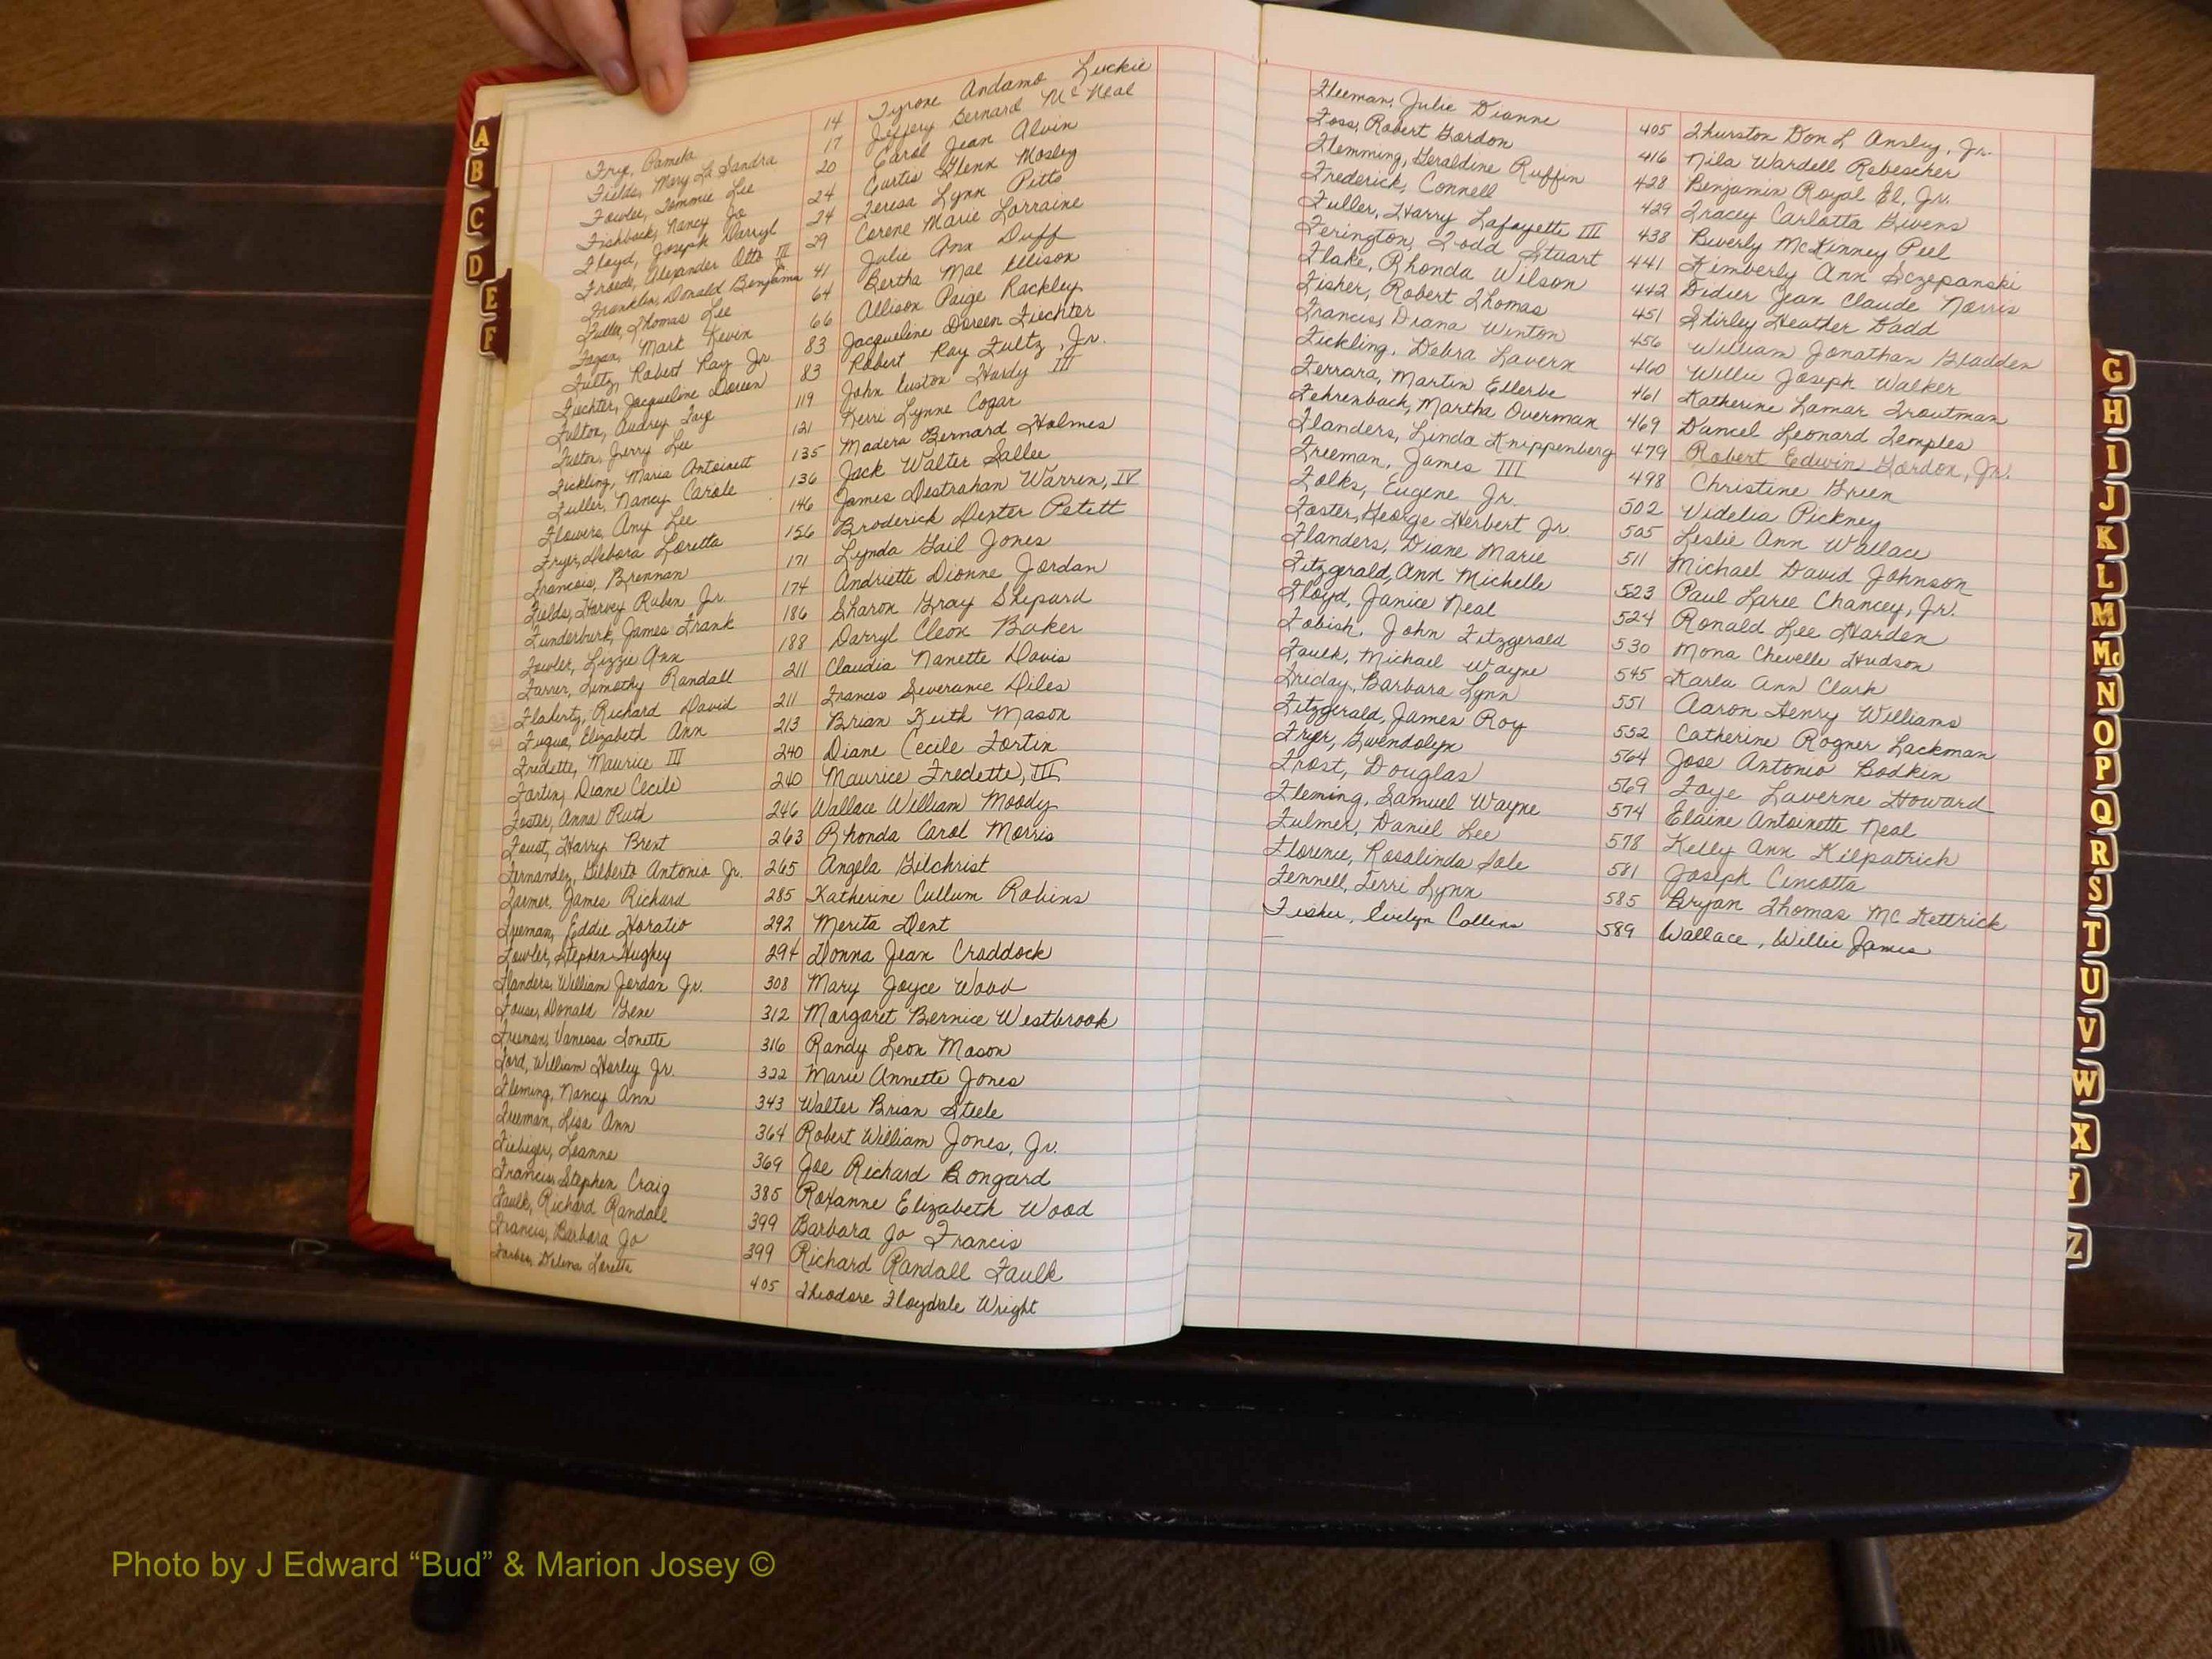 A
B
C
D
E
F
Frye, Pamela 14 Tyrone Andamo Luckie
Fields, Mary La Sandra 17 Jeffery Bernard McNeal
Fowler, Tommie Lee 20 Carol Jean Alvin
Fishback, Nancy Jo 24 Curtis Glenn Mosley
Floyd, Joseph Darryl 24 Teresa Lynn Pitts
Froede, Alexander Otto III 29 Corene Marie Lorraine
Franklin, Donald Benjamin 41 Julie Ann Duff
Fuller, Thomas Lee 64 Bertha Mae Ellison
Fagan, Mark Kevin 66 Allison Paige Rackley
Fultz, Robert Ray Jr. 83 Jacqueline Doreen Fiechter
Fiechter, Jacqueline Doreen 83 Robert Ray Fultz, Jr.
Fulton, Audrey Faye 119 John Euston Hardy III
Fulton, Jerry Lee 121 Kerri Lynne Cogar
Fickling, Maria Antoinett 135 Madera Bernard Holmes
Fuller, Nancy Carole 136 Jack Walter Sallee
Flowers, Amy Lee 146 James Destrahan Warren, IV
Fryer, Debora Loretta 156 Broderick Dexter Petett
Francois, Brennan 171 Lynda Gail Jones
Fields, Harvey Ruben Jr. 174 Andriette Dionne Jordan
Funderburk, James Frank 186 Sharon Gray Shepard
Fowler, Lizzie Ann 188 Darryl Cleon Baker
Farrer, Timothy Randall 211 Claudia Nanette Davis
Flaherty, Richard David 211 Frances Severance Diles
Fuqua, Elizabeth Ann 213 Brian Keith Mason
Fredette, Maurice III 240 Diane Cecile Fortin
Fortin, Diane Cecile 240 Maurice Fredette, III
Foster, Anna Ruth 246 Wallace William Moody
Foust, Harry Brent 263 Rhonda Carol Morris
Fernandez, Gilberto Antonio Jr. 265 Angela Gilchrist
Farmer, James Richard 285 Katherine Cullum Robins
Freeman, Eddie Horatio 292 Merita Dent
Fowler, Stephen Hughey 294 Donna Jean Craddock
Flanders, William Jordan Jr. 308 Mary Joyce Wood
Fouse, Donald Gene 312 Margaret Bernice Westbrook
Freeman, Vanessa Tonette 316 Randy Leon Mason
Ford, William Harley Jr. 322 Marie Annette Jones
Fleming, Nancy Ann 343 Walter Brian Steele
Freeman, Lisa Ann 364 Robert William Jones, Jr.
Fiebiger, Leanne 369 Joe Richard Bongard
Francis, Stephen Craig 385 Roxanne Elizabeth Wood
Faulk, Richard Randall 399 Barbara Jo Francis
Francis, Barbara Jo 399 Richard Randall Faulk
Forbes, Delena Lorette 405 Theodore Floydale Wright
Fleeman, Julie Dianne 405 Thurston Don L Ansley, Jr.
Foss, Robert Gordon 416 Nila Wardell Rebescher
Flemming, Geraldine Ruffin 428 Benjamin Royal El, Jr.
Frederick, Connell 429 Tracey Carlotta Givens
Fuller, Harry Lafayette III 438 Beverly McKinney Peel
Ferington, Todd Stuart 441 Kimberly Ann Sczepanski
Flake, Rhonda Wilson 442 Didier Jean Claude Norris
Fisher, Robert Thomas 451 Shirley Heather Ladd
Francis, Diana Winton 456 William Jonathan Gladden
Fickling, Debra Lavern 460 Willie Joseph Walker
Ferrara, Martin Ellerbe 461 Katherine Lamar Troutman
Fehrenback, Martha Overman 469 Dancel Leonard Temples
Flanders, Linda Knippenberg 479 Robert Edwin Gordon, Jr.
Freeman, James III 498 Christine Green
Folks, Eugene Jr. 502 Videlia Pickney
Foster, George Herbert Jr. 505 Leslie Ann Wallace
Flanders, Diane Marie 511 Michael David Johnson
Fitzgerald, Ann Michelle 523 Paul Larie Chancey, Jr.
Floyd, Janice Neal 524 Ronald Lee Harden
Fobish, John Fitzgerald 530 Mona Chevelle Hudson
Faulk, Michael Wayne 545 Karla Ann Clark
Friday, Barbara Lynn 551 Aaron Henry Williams
Fitzgerald, James Roy 552 Catherine Rogner Lackman
Fryer, Gwendolyn 564 Jose Antonio Bodkin
Frost, Douglas 569 Faye Laverne Howard
Fleming, Samuel Wayne 574 Elaine Antoinette Neal
Fulmer, Daniel Lee 578 Kelly Ann Kilpatrick
Florence, Rosalinda Sale 581 Joseph Cincotta
Fennell, Terri Lynn 585 Bryan Thomas McKettrick
Fisher, Evelyn Collins 589 Wallace, Willie James
G
H
I
J
K
L
M
Mc
N
O
P
Q
R
S
T
U
V
W
X
Y
Z
Photo by J Edward “Bud” & Marion Josey ©